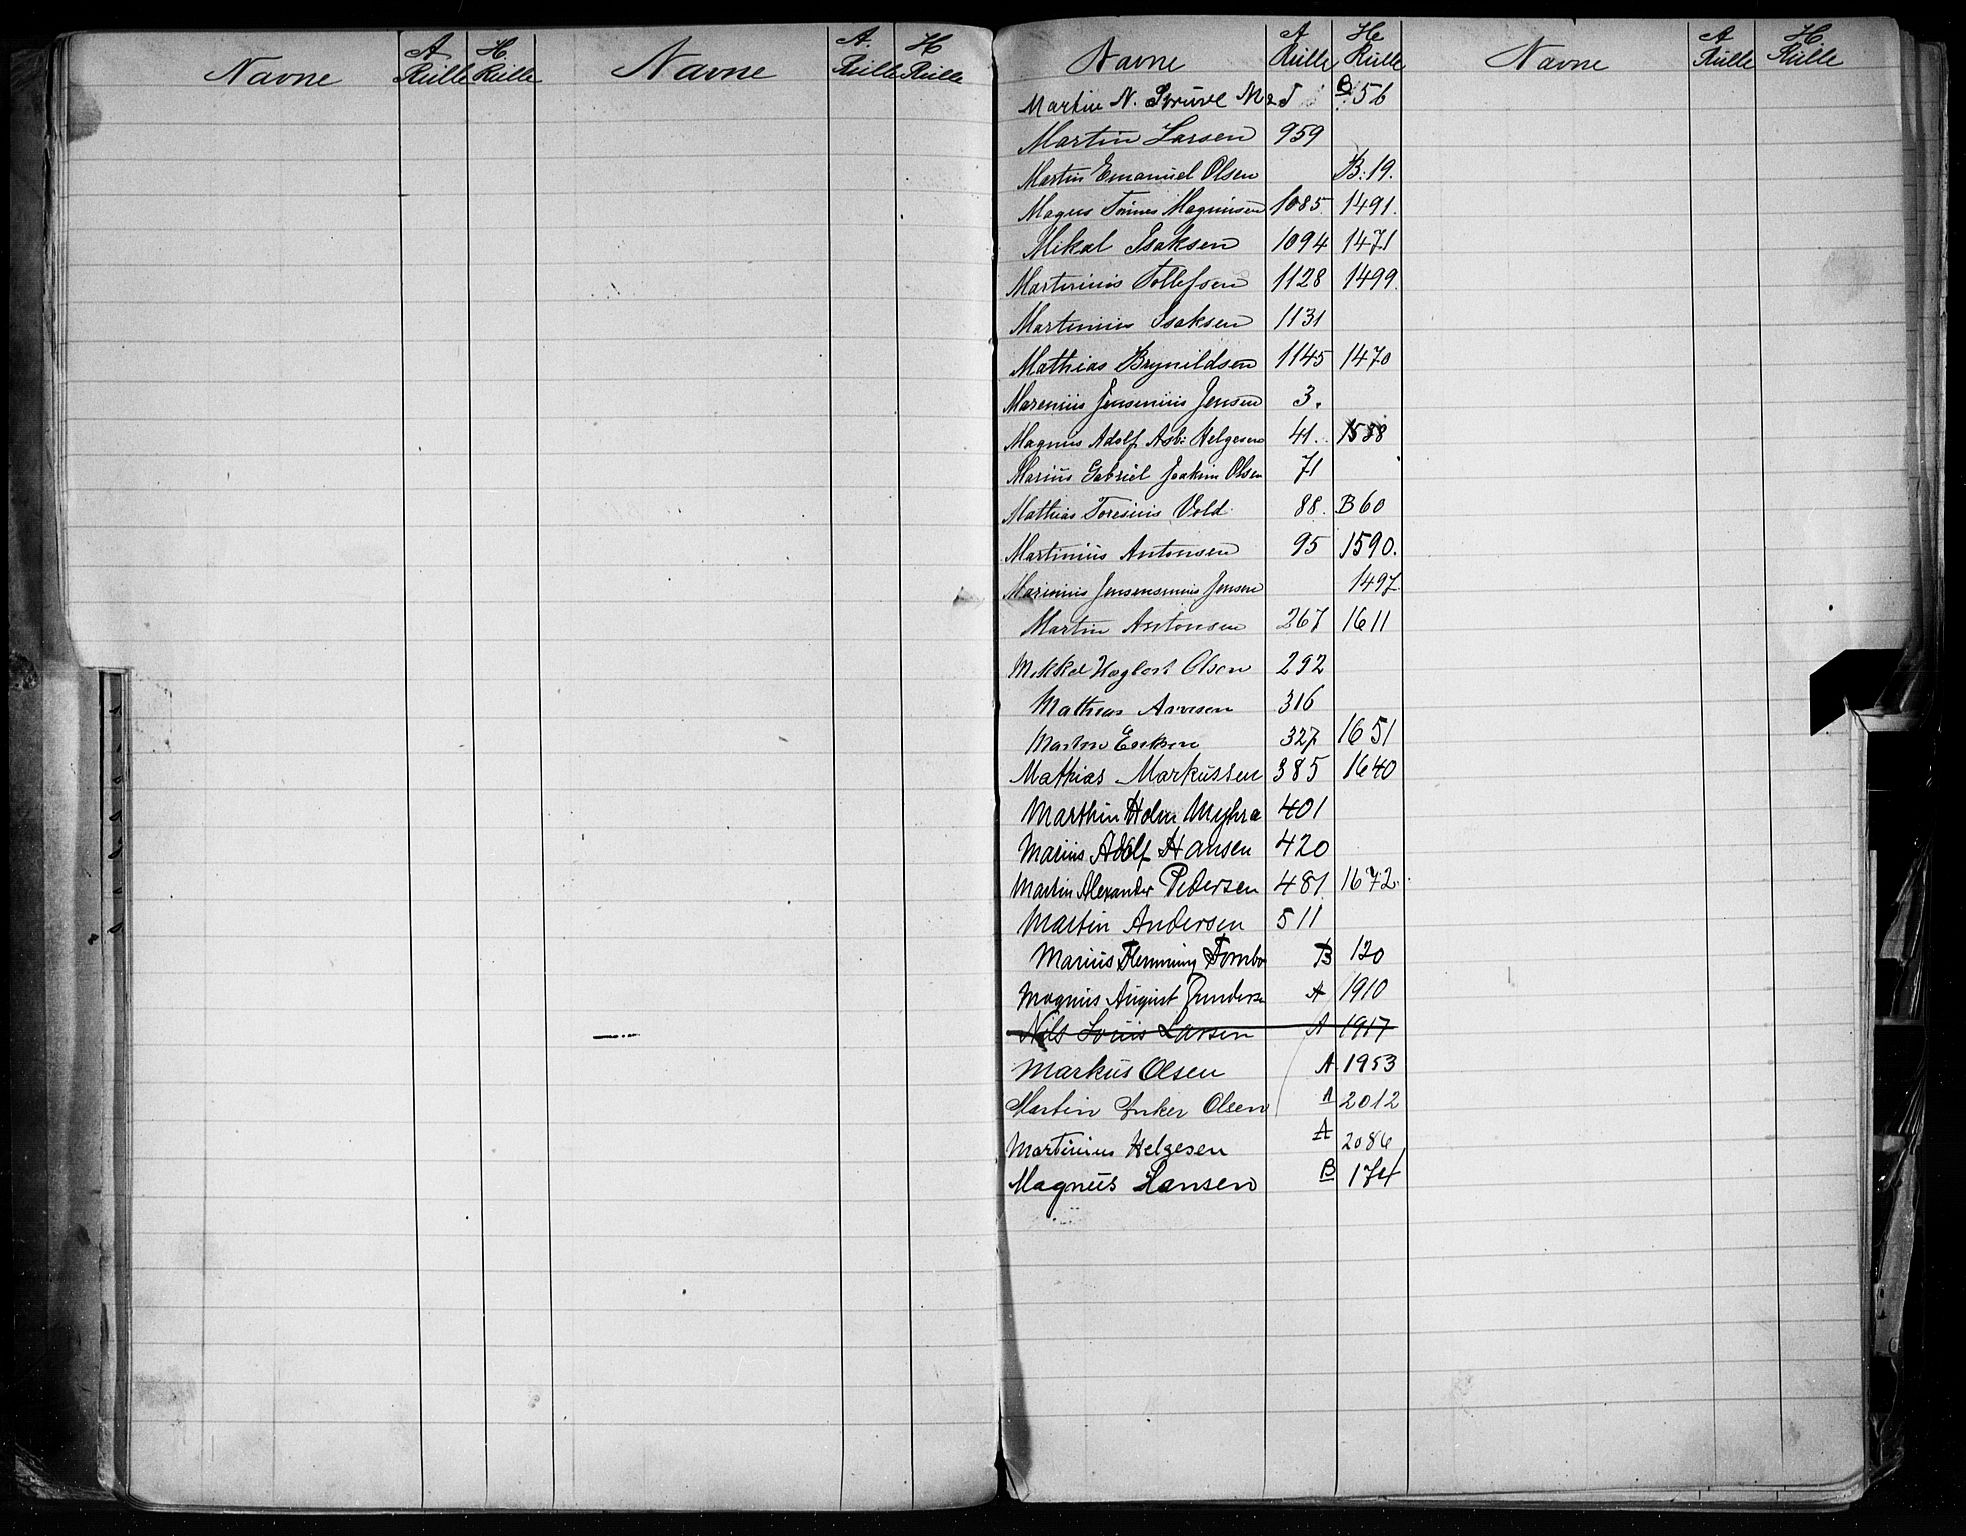 Navne A Rulle H Rulle Navne A. Rulle H Rulle
Navne A Rulle H Rulle Navne A Rulle H Rulle
Martin N. 56
Martin Larsen 959
Martin Emanuel Olsen B. 19.
Magnus Tønnes Magnusen 1085. 1491.
Mikal Isaksen 1094 1471
Martinius Tollefsen 1128 1499.
Martinius Isaksen 1131
Mathias Brynildsen 1145 1470
Marenius Jensenius Jensen 3.
Magnus Adolf Asb: Helgesen 41. 1588
Marius Gabriel Joakim Olsen 71
Mathias Toresius Vold 88. B 60
Martinius Antonsen 95 1590.
Marinius Jensensinius Jensen 1497
Martin Antonsen 267 1611
Mikkel Hagbart Olsen 292
Mathias Arvesen 316
Martin Eriksen 327 1651
Mathias Markussen 385 1640
Marthin Holm Myhra 401
Marius Adolf Hansen 420
Martin Alexander Pedersen 481 1672.
Martin Andersen 511
Marius Flemming Tombo B 120
Magnus August Gunderse A 1910
Nils Louis Larsen A 1917
Markus Olsen A 1953
Martin Inker Olsen A 2012
Martinius Helgesen A 2086
Magnus Hansen B 174